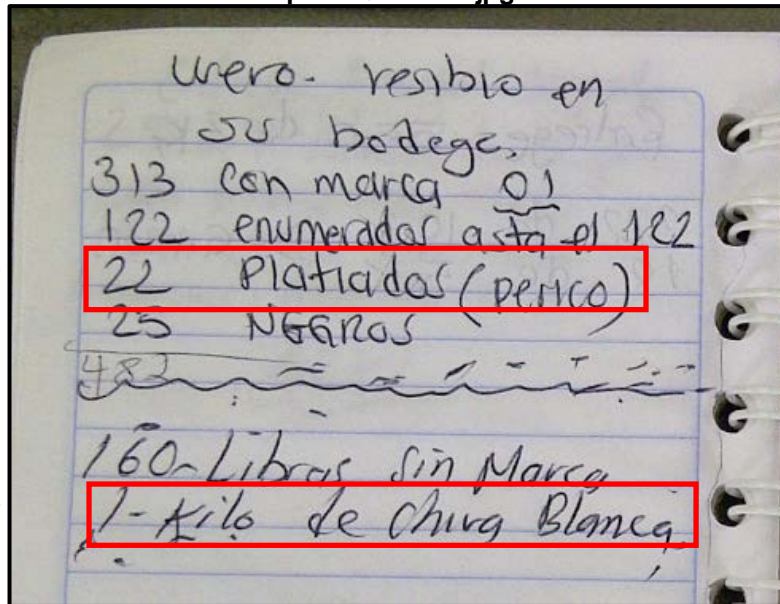 uero. resibio en
su bodega.
313 con marca 01
122 enumerados asta el 122
22 Platiados (perico)
25 NEGROS
482
160-Libras sin Marca
1-Kilo de Chiva Blanca